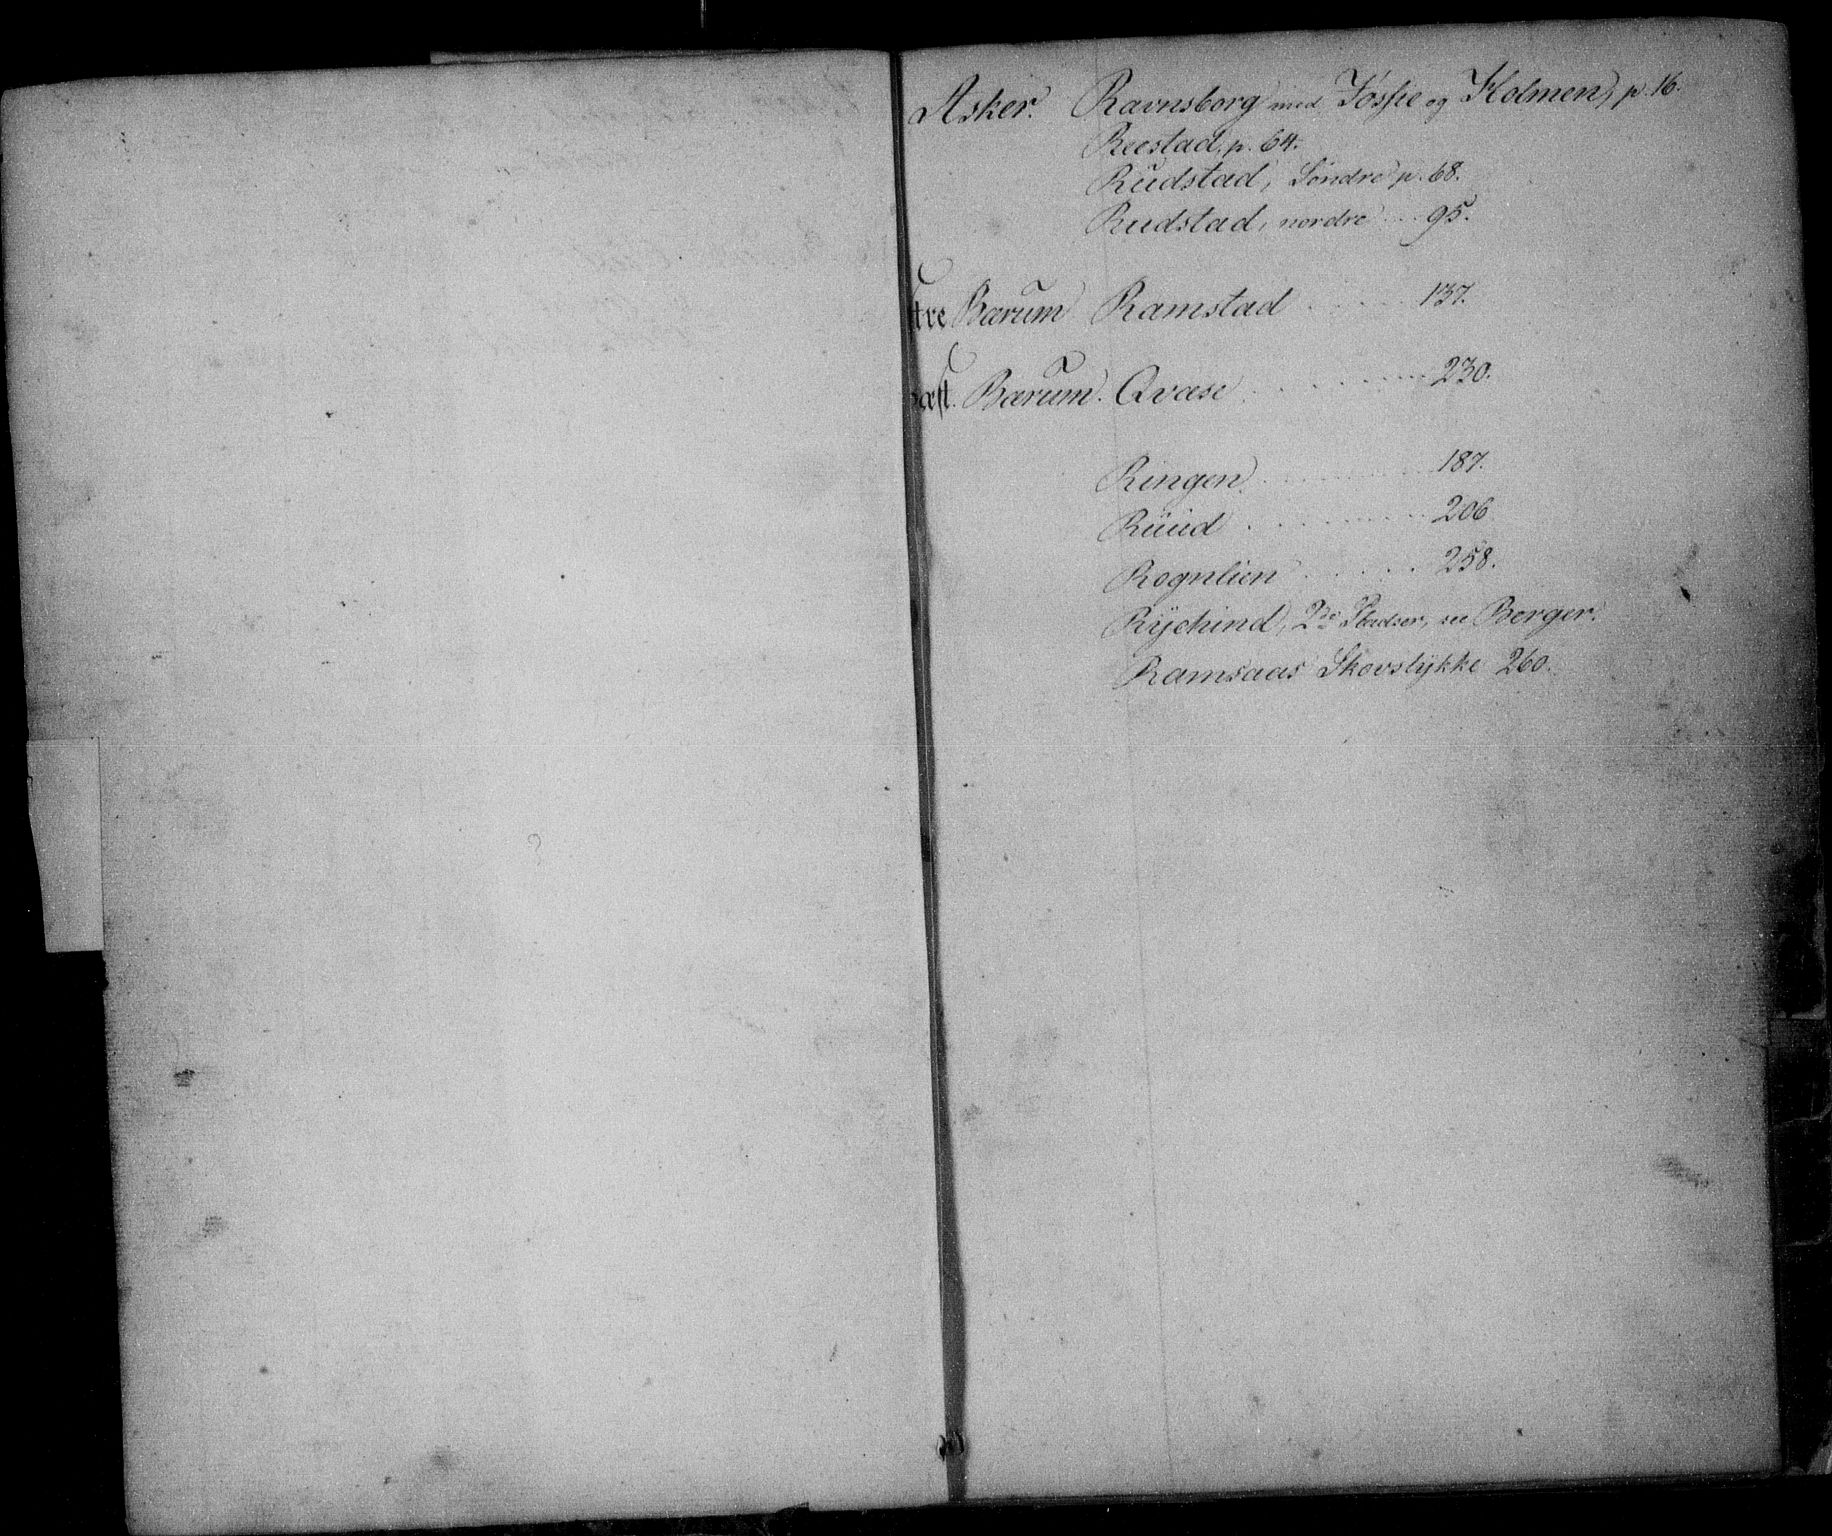 Asker. Ravnsborg med Høshie og Holmen, p. 16.
Reestad, p. 64.
Rudstad, Søndre p. 68.
Rudstad, nordre ... 95.
tre Bærum Ramstad ..... 137.
væst. Bærum. Qvæse ..... 230.
Ringen ..... 187.
Ruud ..... 206
Rognlien ..... 258.
Ryehind, 2de Pladser, see Berger.
Ramsaas Skovstykke 260.